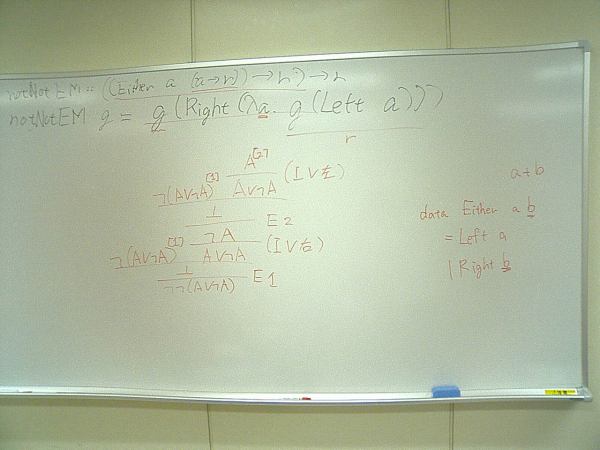 notNotEM :: ((Either a (a→r))→r)→r
notNotEM g = g (Right (λa. g (Left a)))
r
A[2]
¬(A∨¬A)[1] A∨¬A (I∨左)
⊥ E2
¬A
¬(A∨¬A)[1] A∨¬A (I∨右)
⊥ E1
¬¬(A∨¬A)
a+b
data Either a b
= Left a
| Right b